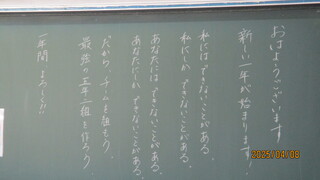 おはようございます
新しい一年が始まります!
私にはできないことがある。
私にしかできないことがある。
あなたにはできないことがある。
あなたにしかできないことがある。
だから、チームを組もう。
最強の三年一組を作ろう。
一年間 よろしく!!
2025/04/08